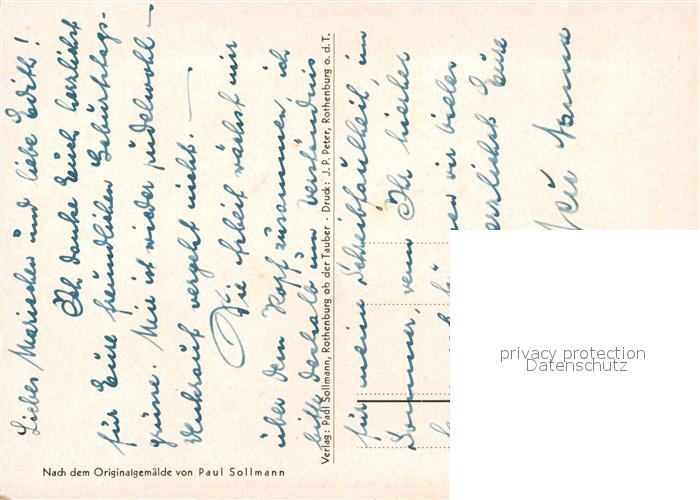 Liebes Mariechen und liebe Edith!
Ich danke Euch herzlichst
für Eure freundlichen Geburtstags-
grüsse. Mir ist wieder pudelwohl –
Unkraut vergeht nicht. –
Die Arbeit wächst mir
über dem Kopf zusammen, ich
bitte deshalb um Verständnis
für meine Schreibfaulheit, im
Sommer, wenn Ihr hierher
wir vieles
herzlichst Eure
Anna
Verlag: Paul Sollmann, Rothenburg ob der Tauber · Druck: J. P. Peter, Rothenburg o. d. T.
Nach dem Originalgemälde von Paul Sollmann
privacy protection
Datenschutz